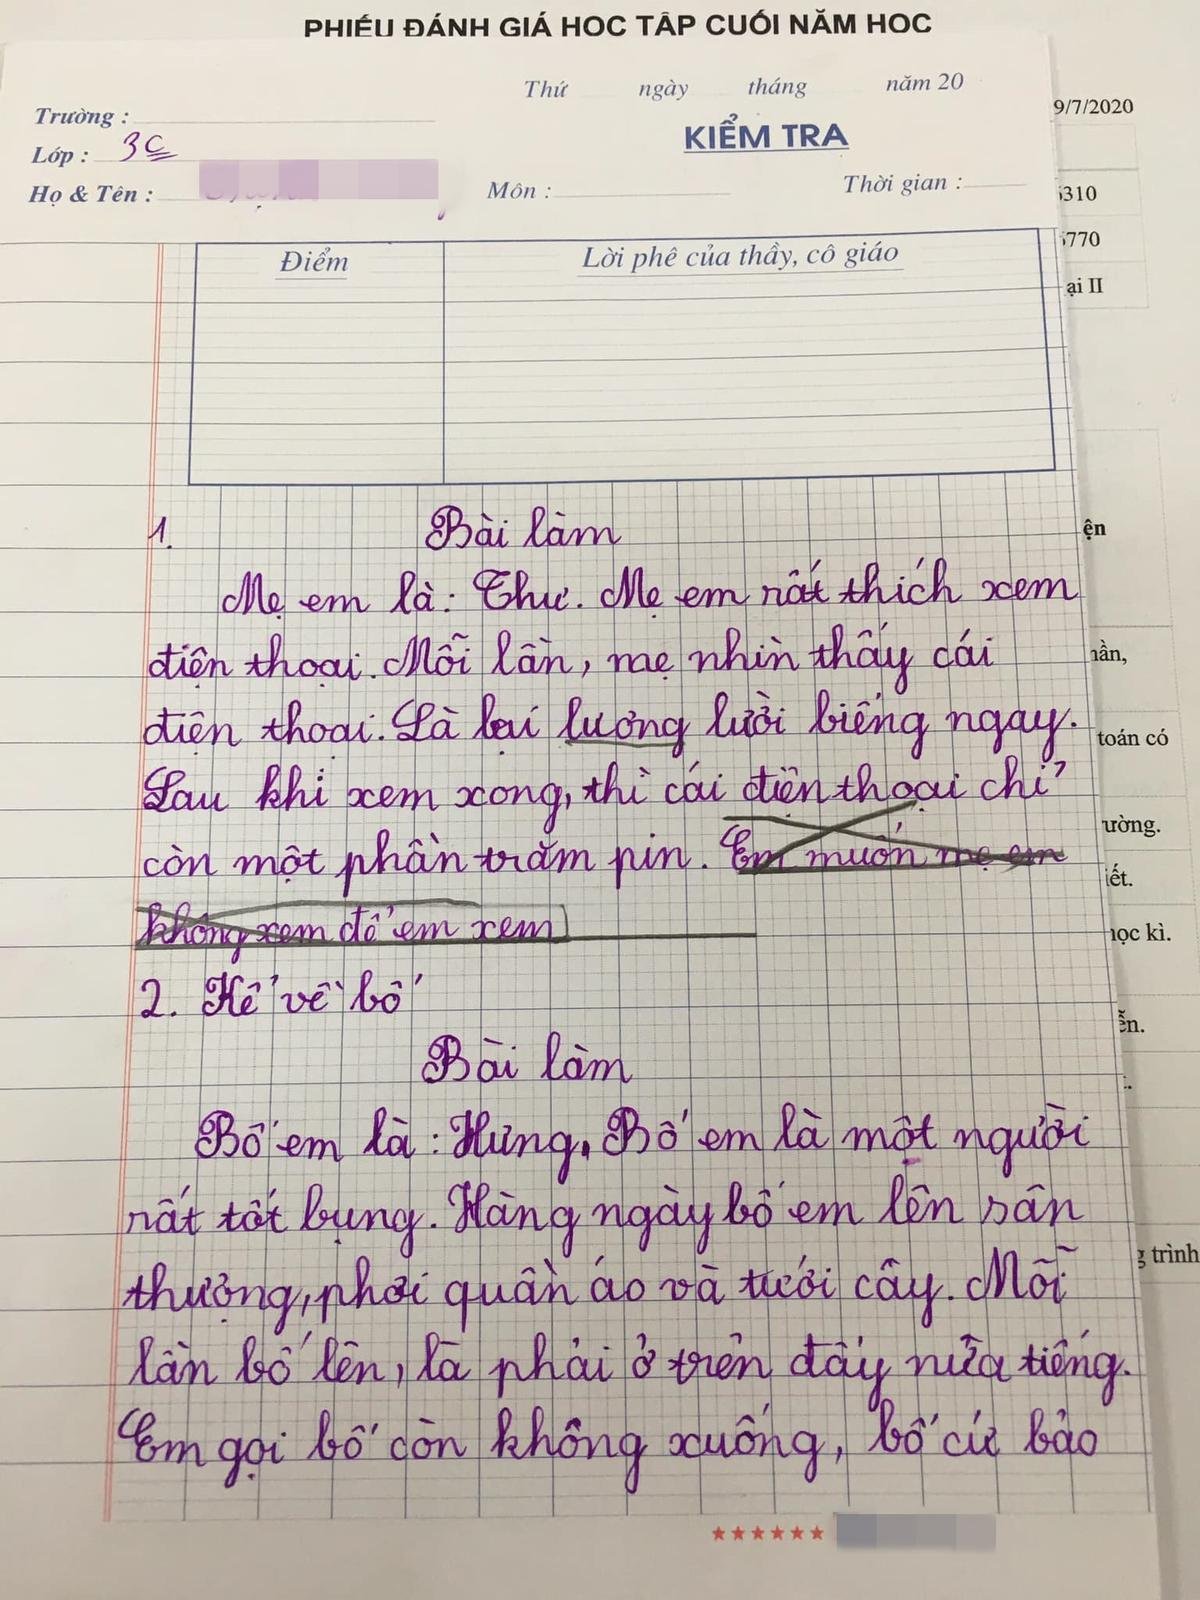 PHIẾU ĐÁNH GIÁ HỌC TẬP CUỐI NĂM HỌC
Thứ ngày tháng năm 20
9/7/2020
Trường :
KIỂM TRA
Lớp : 3C
Họ & Tên :
Môn :
Thời gian :
310
770
ại II
Điểm
Lời phê của thầy, cô giáo
1.
Bài làm
ện
Mẹ em là: Thư. Mẹ em rất thích xem
điện thoại. Mỗi lần, mẹ nhìn thấy cái
điện thoại. Là lại lương lười biếng ngay.
toán có
Sau khi xem xong, thì cái điện thoại chỉ
ường.
còn một phần trăm pin. Em muốn mẹ em
iết.
không xem để em xem
học kì.
2. Kể về bố
Bài làm
Bố em là: Hưng. Bố em là một người
rất tốt bụng. Hàng ngày bố em lên sân
thượng, phơi quần áo và tưới cây. Mỗi
trình
lần bố lên, là phải ở trên đấy nửa tiếng.
Em gọi bố còn không xuống, bố cứ bảo